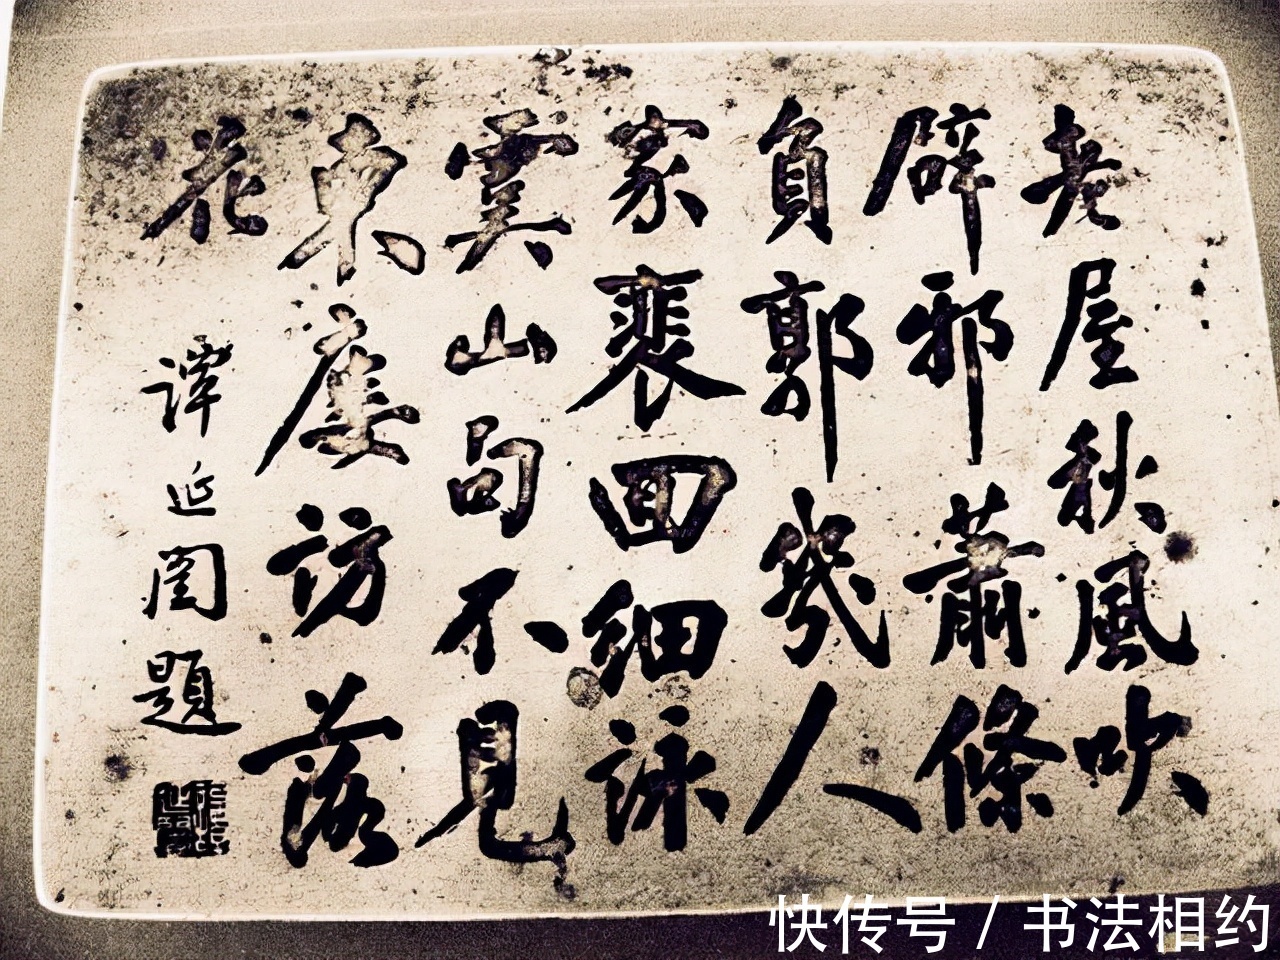 老屋秋風吹
辟邪蕭條
負郭幾人
家裴回細詠
雲山句不見
東廔訪落
花
譚延闓題
快传号 / 书法相约